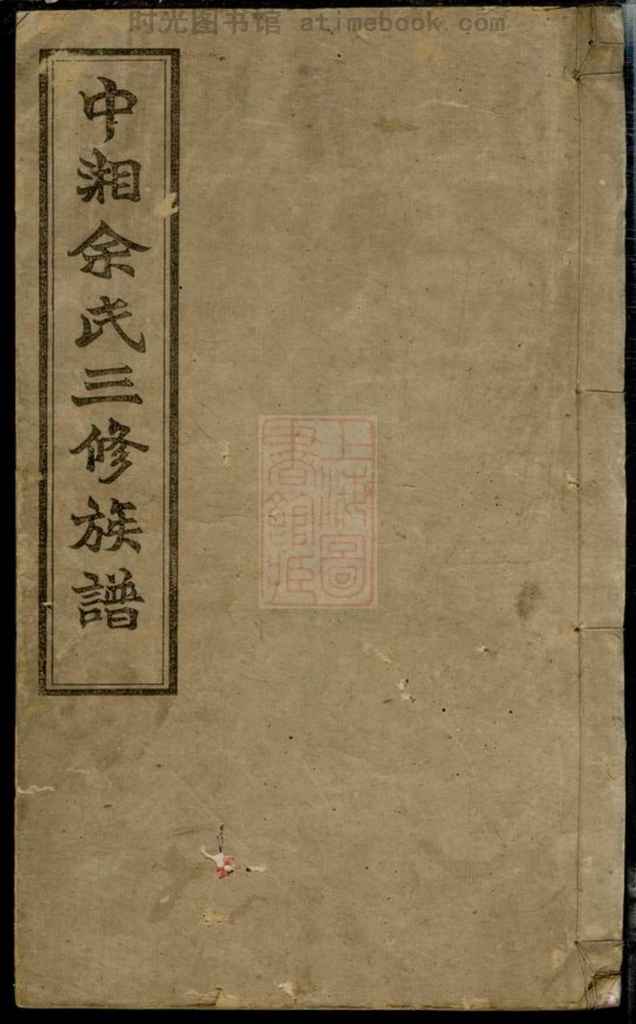 时光图书馆 atimebook.com
中湘余氏三修族譜
上海圖
書館藏
atimebook.com